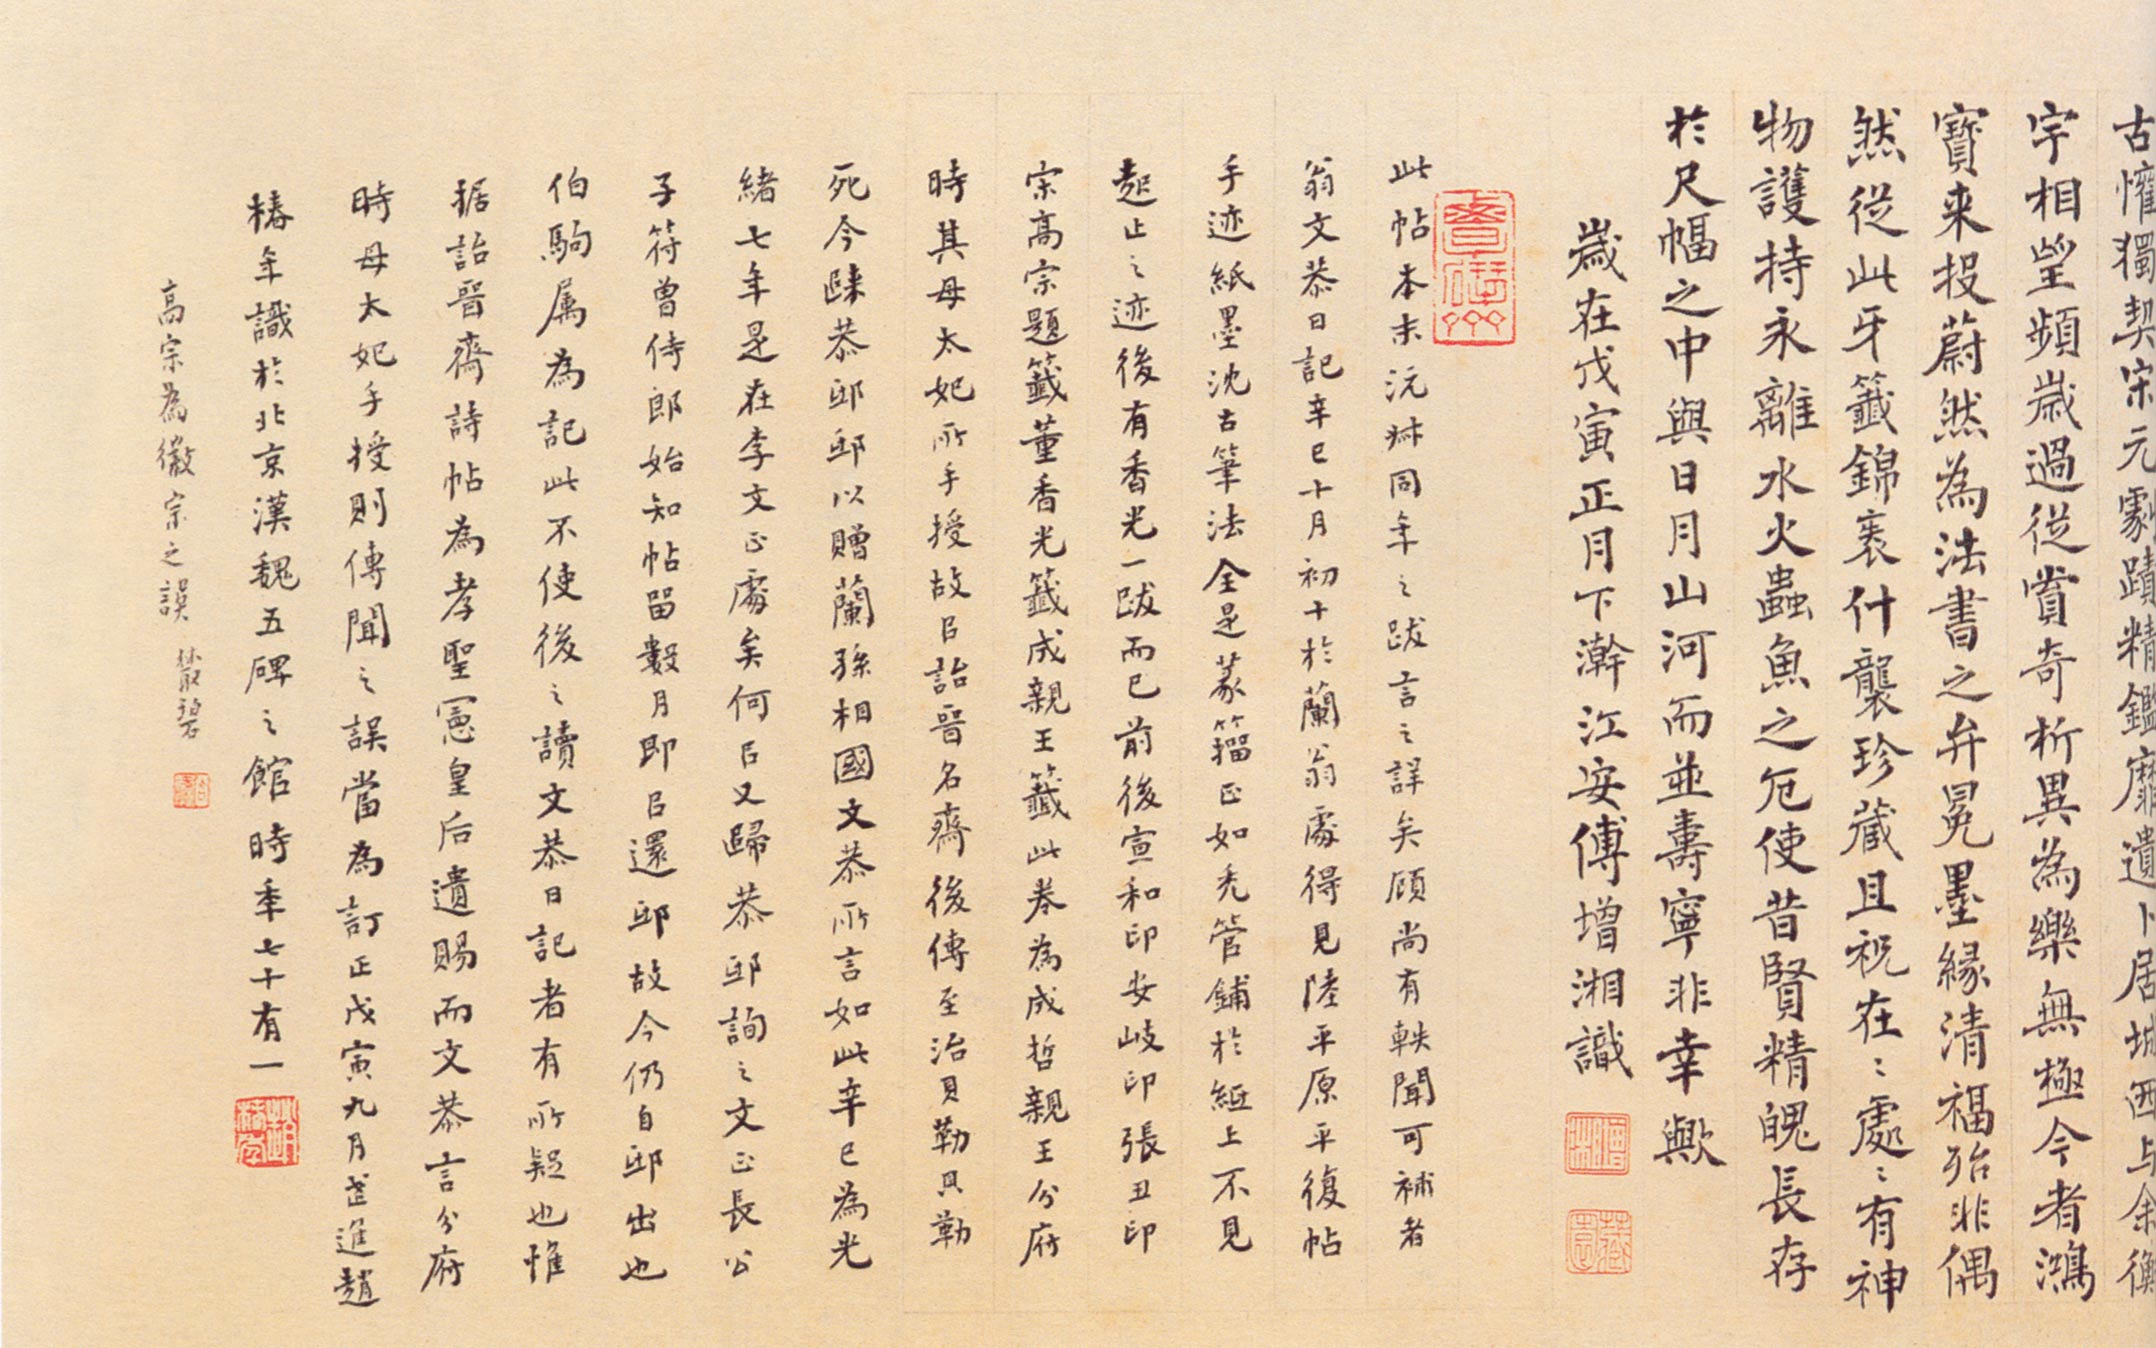 古懽獨契宋元劇蹟精鑑靡遺卜居城西与余衡
宇相望頻歲過從賞奇析異為樂無極今者鴻
寳来投蔚然為法書之弁冕墨緣清福殆非偶
然從此牙籤錦裹什襲珍藏且祝在〻處〻有神
物護持永離水火蟲魚之厄使昔賢精魄長存
於尺幅之中與日月山河而並壽寧非幸歟
歲在戊寅正月下澣江安傅增湘識
此帖本末沅叔同年之跋言之詳矣顧尚有軼聞可補者
翁文恭日記辛巳十月初十於蘭翁處得見陸平原平復帖
手迹紙墨沈古筆法全是篆籀正如禿管鋪於紙上不見
起止之迹後有香光一跋而已前後宣和印安岐印張丑印
宗高宗題籤董香光籤成親王籤此卷為成哲親王分府
時其母太妃所手授故吕詒晉名齋後傳至治貝勒貝勒
死今歸恭邸邸以贈蘭孫相國文恭所言如此辛巳為光
緒七年是在李文正處矣何吕又歸恭邸詢之文正長公
子符曾侍郎始知帖留數月即吕還邸故今仍自邸出也
伯駒属為記此不使後之讀文恭日記者有所疑也惟
据詒晉齋詩帖為孝聖憲皇后遺賜而文恭言分府
時母太妃手授則傳聞之誤當為訂正戊寅九月武進趙
椿年識於北京漢魏五碑之館時年七十有一
高宗為徽宗之誤 叢碧